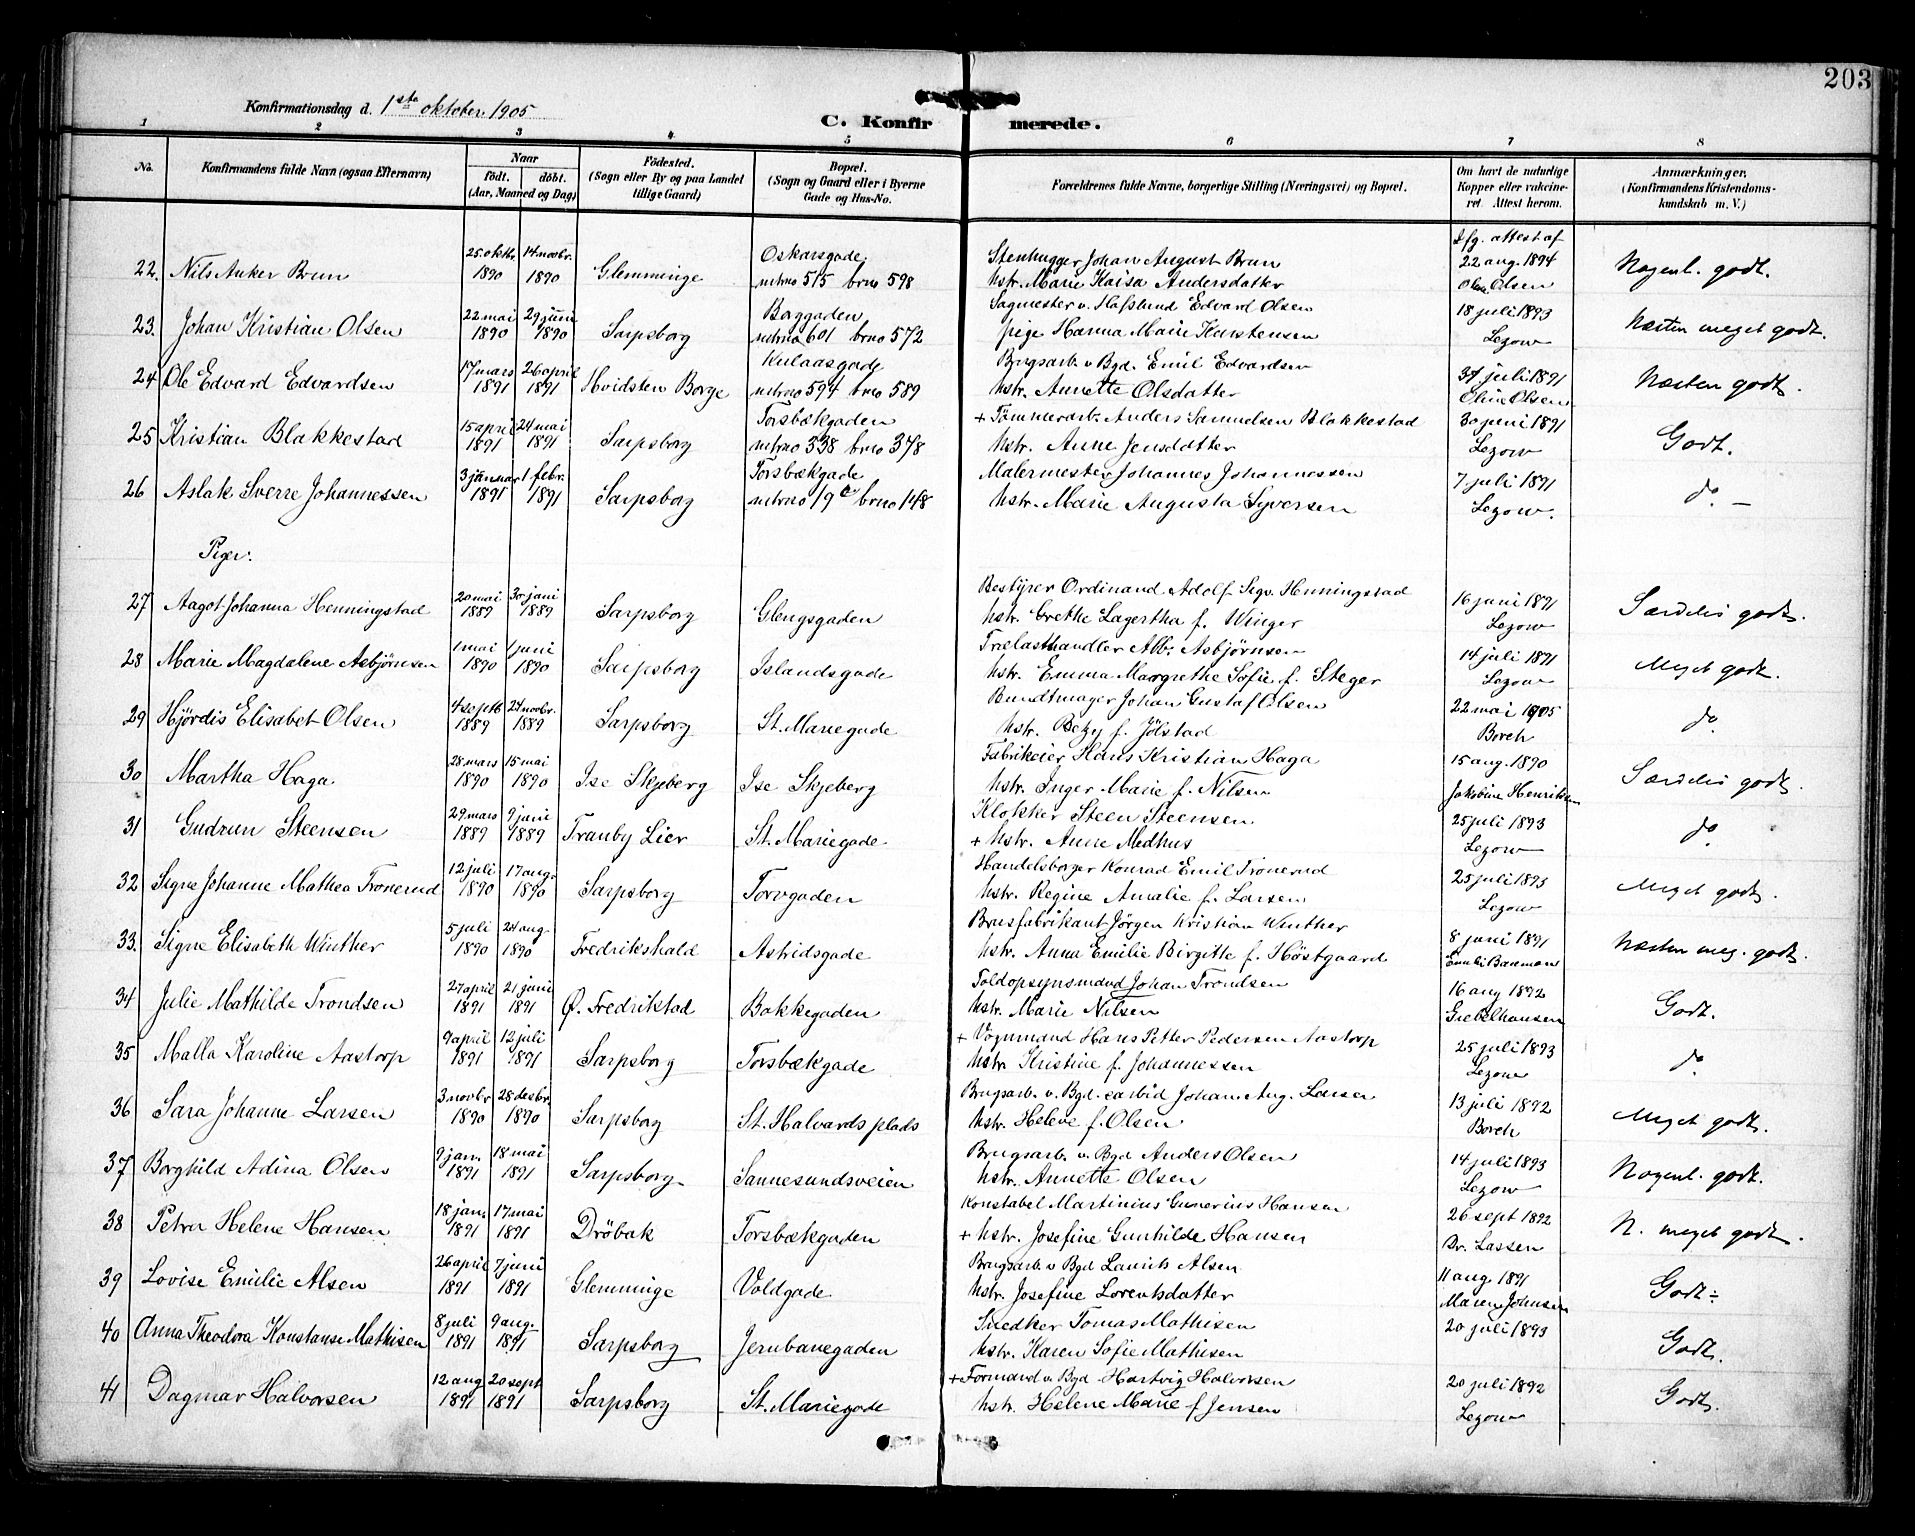 203
Konfirmationsdag d. 1ste oktober 1905
C. Konfirmerede.
1 2 3 4 5 6 7 8
No. Konfirmandens fulde Navn (ogsaa Efternavn) Naar født. døbt. (Aar, Maaned og Dag) Födested. (Sogn eller By og paa Landet tillige Gaard) Bopæl. (Sogn og Gaard eller i Byerne Gade og Hus-No. Forældrenes fulde Navne, borgerlige Stilling (Næringsvei) og Bopæl. Om havt de naturlige Kopper eller vakcineret. Attest herom. Anmærkninger. (Konfirmandens Kristendomskundskab m. V.)
22. Nils Anker Brun 25. oktbr. 1890 14 novbr. 1890 Glemminge Oskarsgade mtrno 515 brno 598 Stenhugger Johan August Brun Hstr. Marie Kaisa Andersdatter Ifg. attest af 22 aug. 1894 Olsen Nogenl. godt.
23. Johan Kristian Olsen 22 mai 1890 29 juni 1890 Sarpsborg Borggaden mtrno 601 brno 572 Sagmester v. Hafslund Edvard Olsen pige Hanna Marie Karstensen 18 juli 1893 Lezow Næsten meget godt.
24 Ole Edvard Edvardsen 17 mars 1891 26 april 1891 Hvidsten Borge Kulaasgade mtrno 594 brno 589 Brugsarb. v Bgd. Emil Edvardsen Hstr. Annette Olsdatter 31 juli 1891 Oline Olsen Næsten godt.
25 Kristian Blakkestad 15 april 1891 24 mai 1891 Sarpsborg Torsbækgaden mtrno 338 brno 378 + Tømmerarb. Anders Samuelsen Blakkestad Hstr. Anne Jensdatter 30 juni 1891 Lezow Godt.
26 Aslak Sverre Johannessen 3 januar 1891 1 febr. 1891 Sarpsborg Torsbækgade mtrno 19 brno 148 Malermester Johannes Johannessen Hstr. Marie Augusta Syversen 7 juli 1891 Lezow. do. —
Piger:
27 Aagot Johanna Henningstad 20 mai 1889 30 juni 1889 Sarpsborg Glengsgaden Bestyrer Ordinand Adolf Sigv. Henningstad Hstr. Grethe Lagertha f. Winger 16 juni 1891 Lezow Særdeles godt.
28 Marie Magdalene Asbjørnsen 1 mai 1890 1 juni 1890 Sarpsborg Islandsgade Trælasthandler Alb. Asbjørnsen Hstr. Emma Margrethe Sofie f. Steger 14 juli 1891 Lezow Meget godt.
29 Hjördis Elisabet Olsen 4 septb 1889 24 novbr. 1889 Sarpsborg St. Mariegade Bundtmager Johan Gustaf Olsen Hstr. Betzy f. Jölstad 22 mai 1905 Borch do
30 Martha Haga. 28 mars 1890 15 mai 1890 Ise Skjeberg Ise Skjeberg Fabrikeier Hans Kristian Haga Hstr. Inger Marie f. Nilsen 15 aug. 1890 Jakobine Henriksen Særdeles godt.
31 Gudrun Steensen 29 mars 1889 9 juni 1889 Tranby Lier St. Mariegade Klokker Steen Steensen + Hstr. Anne Medhus 25 juli 1893 Lezow do.
32 Signe Johanne Mathea Tronerud 12 juli 1890 17 aug. 1890 Sarpsborg Torvgaden Handelsborger Konrad Emil Tronerud Hstr. Regine Amalie f. Larsen 25 juli 1893 Lezow Meget godt.
33. Signe Elisabeth Winther 5 juli 1890 24 aug. 1890 Fredrikshald Astridsgade Brusfabrikant Jörgen Kristian Winther Hstr. Anna Emilie Birgitte f. Höstgaard 8 juni 1891 Næsten meg. godt.
34 Julie Mathilde Trondsen 27 april 1891 21 juni 1891 Ø. Fredrikstad Bakkegaden Toldopsynsmand Johan Trondsen Hstr. Marie Nilsen 16 aug 1892 Giebelhausen Godt.
35 Malla Karoline Aastorp 9 april 1891 12 juli 1891 Sarpsborg Torsbækgade + Vognmand Hans Petter Pedersen Aastorp Hstr. Kristine f. Johannessen 25 juli 1893 Lezow do.
36 Sara Johanne Larsen 3 novbr 1890 28 desbr. 1890 Sarpsborg St. Halvards plads Brugsarb. v. Bgd. carbid Johan Aug. Larsen Hstr. Helene f. Olsen 13 juli 1892 Borch Meget godt.
37 Borghild Adina Olsen 9 jan. 1891 18 mai 1891 Sarpsborg Sannesundsveien Brugsarb. v. Bgd Anders Olsen Hstr. Annette Olsen 14 juli 1893 Lezow Nogenl. godt.
38 Petra Helene Hansen 18 jan. 1891 17 mai 1891 Dröbak Torsbækgaden Konstabel Martinius Gunerius Hansen + Hstr. Josefine Gunhilde Hansen 26 sept 1892 Dr. Lassen N. meget godt.
39 Lovise Emilie Alsen 26 april 1891 7 juni 1891 Glemminge Voldgade Brugsarb. v Bgd Laurits Alsen Hstr. Josefine Lorentsdatter 11 aug 1891 Maren Johnsen Godt.
40 Anna Theodora Konstanse Mathisen 8 juli 1891 9 aug. 1891 Sarpsborg Jernbanegaden Snedker Tomas Mathisen Hstr. Karen Sofie Mathisen 20 juli 1893 Godt.
41 Dagmar Halvorsen 12 aug 1891 20 sept 1891 Sarpsborg St. Mariegade + Formand v. Bgd Hartvig Halvorsen Hstr. Helene Marie f Jensen 20 juli 1892 Lezow Godt.